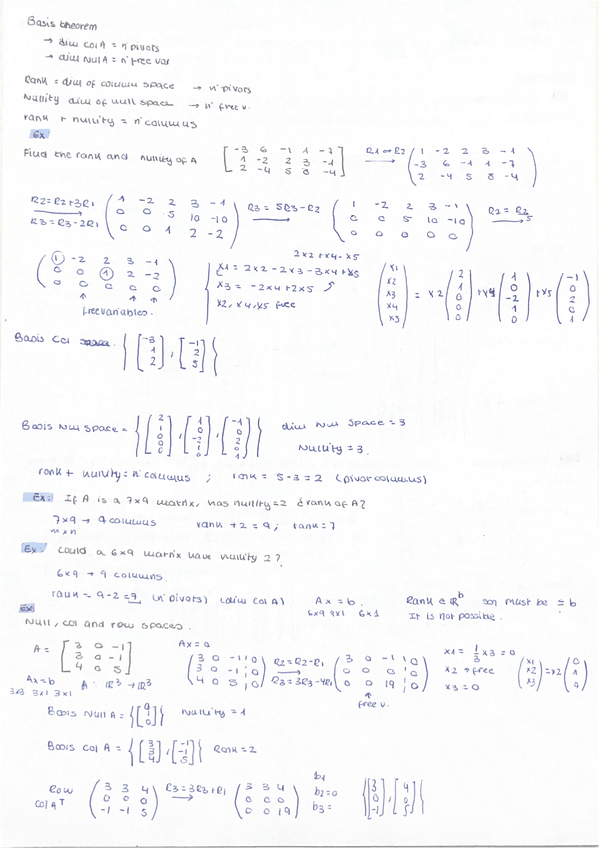 Basis theorem
→ dim Col A = nº pivots
→ dim Nul A = nº free var
Rank = dim of column space → nº pivots
Nullity dim of null space → nº free v.
rank + nullity = nº columns
Ex
Find the rank and nullity of A [-3 6 -1 1 -7; 1 -2 2 3 -1; 2 -4 5 8 -4] R1↔R2 (1 -2 2 3 -1; -3 6 -1 1 -7; 2 -4 5 8 -4)
R2=R2+3R1 R3=R3-2R1 (1 -2 2 3 -1; 0 0 5 10 -10; 0 0 1 2 -2) R3=5R3-R2 (1 -2 2 3 -1; 0 0 5 10 -10; 0 0 0 0 0) R2=R2/5
2x2+x4-x5
(1 -2 2 3 -1; 0 0 1 2 -2; 0 0 0 0 0) { x1 = 2x2 - 2x3 - 3x4 + x5 x3 = -2x4 + 2x5 x2, x4, x5 free (x1 x2 x3 x4 x5) = x2 (2 1 0 0 0) + x4 (1 0 -2 1 0) + x5 (-1 0 2 0 1)
free variables.
Basis Col { [-3 1 2], [-1 2 5] }
Basis Nul Space = { [2 1 0 0 0], [1 0 -2 1 0], [-1 0 2 0 1] } dim Nul Space = 3
Nullity = 3.
rank + nullity = nº columns ; rank = 5-3 = 2 (pivot columns)
Ex: If A is a 7x9 matrix, has nullity=2 ¿rank of A?
7x9 → 9 columns rank + 2 = 9 ; rank = 7
m x n
Ex: Could a 6x9 matrix have nullity 2?
6x9 → 9 columns
rank = 9-2 = 7 (nº pivots) (dim Col A) Ax = b 6x9 9x1 6x1 Rank ∈ ℝᵇ son must be = b
It is not possible.
Ex
Null, col and row spaces.
A = [3 0 -1; 3 0 -1; 4 0 5] Ax=0 (3 0 -1 | 0; 3 0 -1 | 0; 4 0 5 | 0) R2=R2-R1 R3=3R3-4R1 (3 0 -1 | 0; 0 0 0 | 0; 0 0 19 | 0) x1 = 1/3 x3 = 0 x2 → free x3 = 0 (x1 x2 x3) = x2 (0 1 0)
free v.
Ax=b A: ℝ³ → ℝ³
3x3 3x1 3x1
Basis Null A = { [0 1 0] } Nullity = 1
Basis Col A = { [3 3 4], [-1 -1 5] } Rank = 2
Row Col Aᵀ (3 3 4; 0 0 0; -1 -1 5) R3=3R3+R1 (3 3 4; 0 0 0; 0 0 19) b1 b2=0 b3= { [3 0 -1], [4 0 5] }